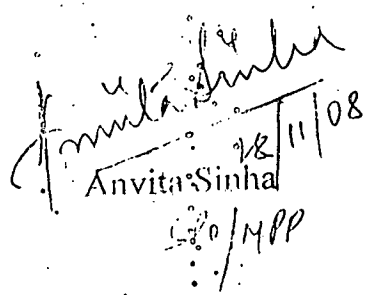 Anvita Sinha
18/11/08
Anvita Sinha
/MPP